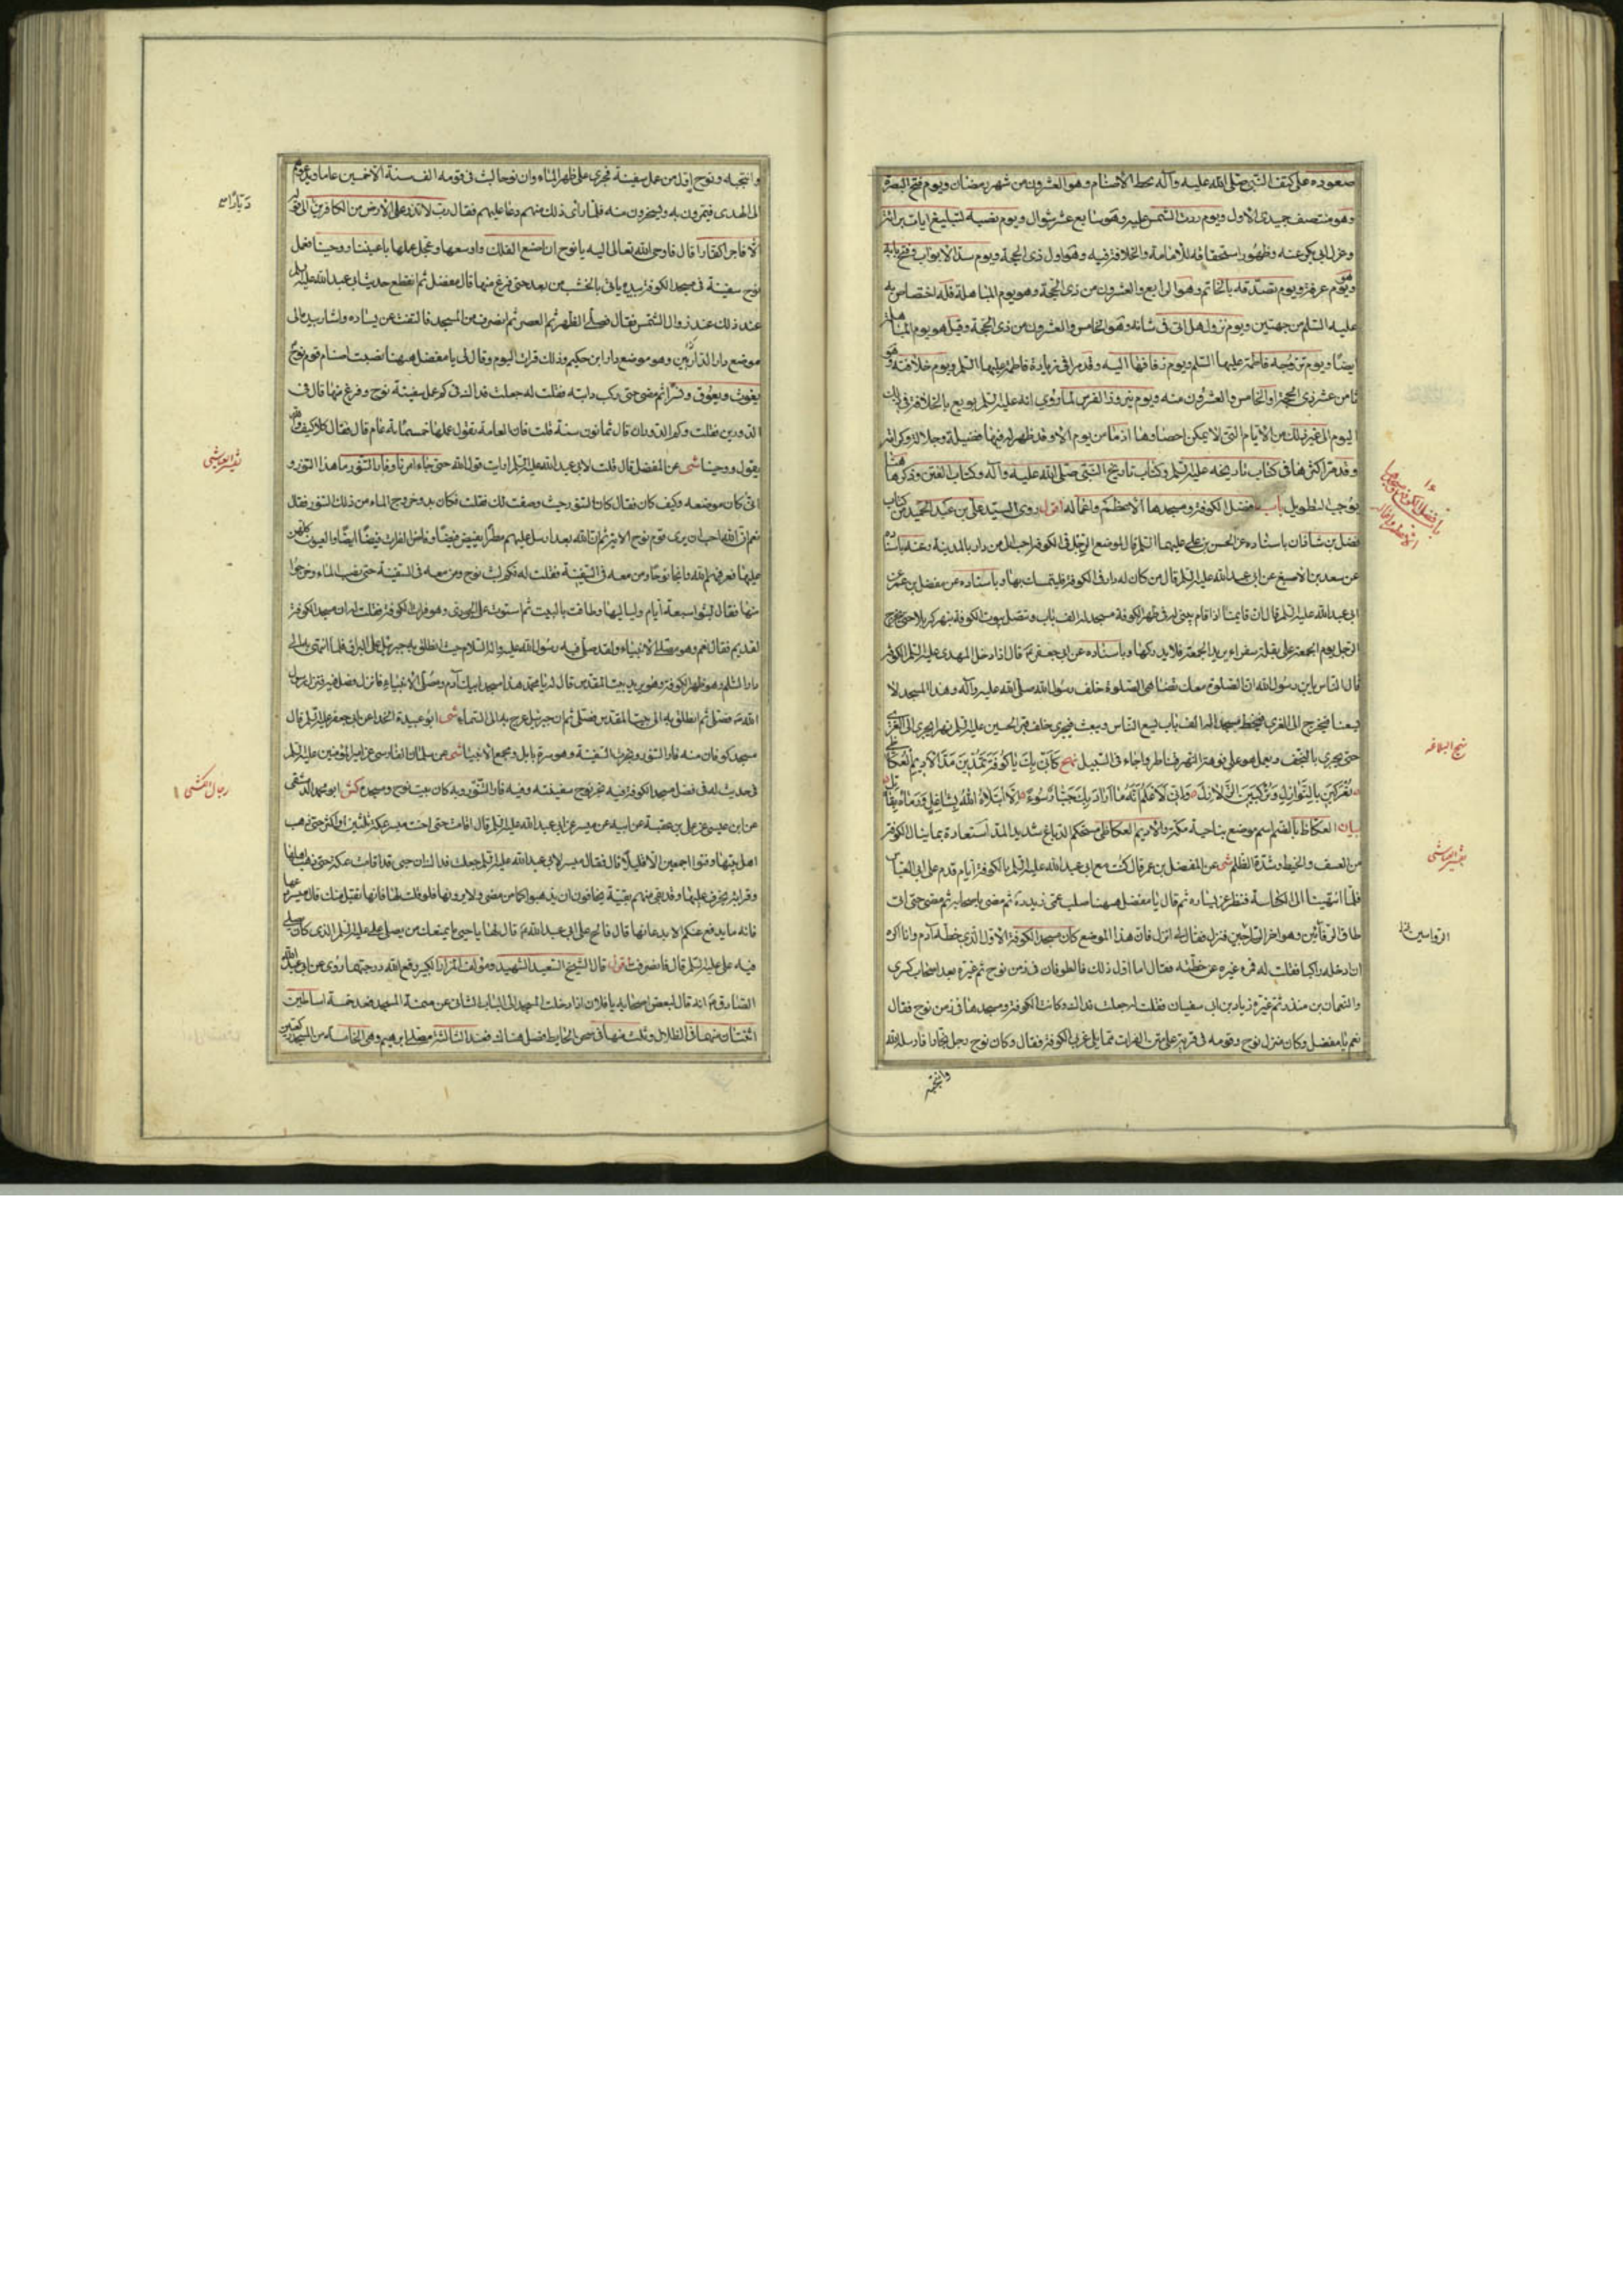 صعوده على كتف النبي صلى الله عليه وآله لحط الاصنام وهو العشرون من شهر رمضان ويوم فتح البصرة
وهو منتصف جمیدی الاول ويوم ردت الشمس عليه وهو سابع عشر شوال ويوم نصبه لتبليغ ايات براءة
وعزل ابي بكر عنه وظهور استحقاقه للامامة والخلافة فيه وهو اول ذي الحجة ويوم سد الابواب وفتح بابه
وهو يوم عرفة ويوم تصدقه بالخاتم وهو الرابع والعشرون من ذي الحجة وهو يوم المباهلة فله اختصاص به
عليه السلم من جهتين ويوم نزول هل اتى في شانه وهو الخامس والعشرون من ذي الحجة وقيل هو يوم المباهلة
ايضا ويوم تزوجه فاطمة عليهما السلم ويوم زفافها اليه وقد مر في زيارة فاطمة عليها السلم ويوم خلافته وهو
ثامن عشر ذي الحجة او الخامس والعشرون منه ويوم نيروز الفرس لما روي انه عليه السلم بويع بالخلافة في ذلك
اليوم الى غير ذلك من الايام التي لا يمكن احصاؤها اذ ما من يوم الا وقد ظهر له فيها فضيلة وجلالة وكرامة
وقد مر اكثرها في كتاب تاريخه عليه السلم وكتاب تاريخ النبي صلى الله عليه وآله وكتاب الفتن وذكرها هنا
يوجب التطويل باب فضل الكوفة ومسجدها الاعظم واعماله اقول روى السيد علي بن عبد الحميد من كتاب
فضل بن شاذان باسناده عن الحسن بن علي عليهما السلم قال لموضع الرجل في الكوفة احب الي من دار بالمدينة وعنه باسناده
عن سعد بن الاصبغ عن ابي عبد الله عليه السلم قال من كان له دار في الكوفة فليتمسك بها وباسناده عن مفضل بن عمر عن
ابي عبد الله عليه السلم قال ان قايمنا اذا قام يبنى له في ظهر الكوفة مسجد له الف باب وتتصل بيوت الكوفة بنهر كربلا حتى يخرج
الرجل يوم الجمعة على بغلة سفواء يريد الجمعة فلا يدركها وباسناده عن ابي جعفر ع قال اذا دخل المهدي عليه السلم الكوفة
قال الناس يابن رسول الله ان الصلوة معك تضاهي الصلوة خلف رسول الله صلى الله عليه وآله وهذا المسجد لا
يسعنا فيخرج الى الغري فيخط مسجدا له الف باب يسع الناس ويبعث فيجري خلف قبر الحسين عليه السلم نهرا يجري الى الغري
حتى يجري بالنجف ويعمل هو على فوهة النهر قناطر وارحاء في السبيل نهج كاني بك يا كوفة تمدين مد الاديم العكاظي
تعركين بالنوازل وتركبين الزلازل واني لاعلم انه ما اراد بك جبار سوءا الا ابتلاه الله بشاغل ورماه بقاتل
بيان العكاظ بالضم اسم موضع بناحية مكة والاديم العكاظي مستحكم الدباغ شديد المد استعارة بما ينال الكوفة
من العسف والخبط وشدة الظلم شى عن المفضل بن عمر قال كنت مع ابي عبد الله عليه السلم بالكوفة ايام قدم على ابي العباس
فلما انتهينا الى الكناسة فنظر عن يساره ثم قال يا مفضل ههنا صلب عمي زيد ره ثم مضى باصحابه ثم مضى حتى اتى
طاق الرواسين وهو اخر السراجين فنزل فقال لي انزل فان هذا الموضع كان مسجد الكوفة الاول الذي خطه آدم وانا اكره
ان ادخله راكبا فقلت له فمن غيره عن خطته فقال اما اول ذلك فالطوفان في زمن نوح ثم غيره بعد اصحاب كسرى
والنعمان بن منذر ثم غيره زياد بن ابي سفيان فقلت له جعلت فداك وكانت الكوفة ومسجدها في زمن نوح فقال
نعم يا مفضل وكان منزل نوح وقومه في قرية على متن الفرات مما يلي غربي الكوفة فقال وكان نوح رجل نجارا فارسله الله
وانتجبه
باب فضل الكوفة ومسجدها الاعظم واعماله
نهج البلاغه
تفسير العياشي
الرواسين
وانتجبه ونوح اول من عمل سفينة تجري على ظهر الماء وان نوحا لبث في قومه الف سنة الا خمسين عاما يدعوهم
الى الهدى فيمرون به ويسخرون منه فلما رأى ذلك منهم دعا عليهم فقال رب لا تذر على الارض من الكافرين الى قوله
الا فاجرا كفارا قال فاوحى الله تعالى اليه يا نوح ان اصنع الفلك واوسعها وعجل عملها باعيننا ووحينا فعمل
نوح سفينة في مسجد الكوفة بيده ياتي بالخشب من بعد حتى فرغ منها قال مفضل ثم انقطع حديث ابي عبد الله عليه السلم
عند ذلك عند زوال الشمس فقال فصلى الظهر ثم العصر ثم انصرف من المسجد فالتفت عن يساره واشار بيده الى
موضع دار الداريين وهو موضع دار ابن حكيم وذلك فرات اليوم وقال لي يا مفضل ههنا نصبت اصنام قوم نوح
يغوث ويعوق ونسرا ثم مضى حتى ركب دابته فقلت له جعلت فداك في كم عمل سفينة نوح وفرغ منها قال في
الدورين فقلت وكم الدوران قال ثمانون سنة قلت فان العامة تقول عملها خمسماية عام قال فقال كلا كيف والله
يقول ووحينا شى عن المفضل قال قلت لابي عبد الله عليه السلم ارايت قول الله حتى جاء امرنا وفار التنور ما هذا التنور و
انى كان موضعه وكيف كان فقال كان التنور حيث وصفت لك فقلت فكان بدو خروج الماء من ذلك التنور فقال
نعم ان الله احب ان يرى قوم نوح الاية ثم ان الله بعد ارسل عليهم مطرا يفيض فيضا وفاض الفرات فيضا ايضا والعيون كلهن
عليها فغرقهم الله وانجا نوحا ومن معه في السفينة فقلت له فكم لبث نوح ومن معه في السفينة حتى نضب الماء وخرجوا
منها فقال لبثوا سبعة ايام ولياليها وطافت بالبيت ثم استوت على الجودي وهو فرات الكوفة فقلت له ان مسجد الكوفة
لقديم فقال نعم وهو مصلى الانبياء ولقد صلى فيه رسول الله عليه واله السلام حيث انطلق به جبرئيل على البراق فلما انتهى به الى
دار السلم وهو ظهر الكوفة وهو يريد بيت المقدس قال له يا محمد هذا مسجد ابيك آدم ومصلى الانبياء فانزل فصل فيه فنزل رسول
الله ص فصلى ثم انطلق به الى بيت المقدس فصلى ثم ان جبرئيل عرج به الى السماء شى ابو عبيدة الحذا عن ابي جعفر عليه السلم قال
مسجد كوفان منه فار التنور ونجرت السفينة وهو سرة بابل ومجمع الانبيا شى عن سلمان الفارسي عن امير المؤمنين عليه السلم
في حديث له في فضل مسجد الكوفة فيه نجر نوح سفينته وفيه فار التنور وبه كان بيت نوح ومسجده كش ابو محمد الدمشقي
عن ابن عيسى عن علي بن عقبة عن ابيه عن ميسر عن ابي عبد الله عليه السلم قال اقامت حبى اخت ميسر بمكة ثلثين او اكثر حتى ذهب
اهل بيتها وفنوا اجمعين الا قليلا قال فقال ميسر لابي عبد الله عليه السلم جعلت فداك ان حبى قد اقامت بمكة حتى ذهب اهلها
وقرابتها عليها وقد بقي منهم بقية يخافون ان يذهبوا كما من مضى ولا يرونها فلو قلت لها فانها تقبل منك قال يا ميسر دعها
فانه ما يدفع عنكم الا بدعائها قال فالح على ابي عبد الله ع قال لها يا حبى ما يمنعك من مصلى علي عليه السلم الذي كان يصلي
فيه علي عليه السلم قال فانصرفت اقول قال الشيخ السعيد الشهيد ومؤلف المزار الكبير رفع الله درجتهما روي عن ابي عبد الله
الصادق ع انه قال لبعض اصحابه يا فلان اذا دخلت المسجد الى الباب الثاني عن ميمنة المسجد فعد خمسة اساطين
اثنتان منها في الظلال وثلث منها في صحن الحايط فصل هناك فعند الثالثة مصلى ابرهيم وهي الخامسة من المسجد ركعتين
تفسير العياشي
رجال الكشي